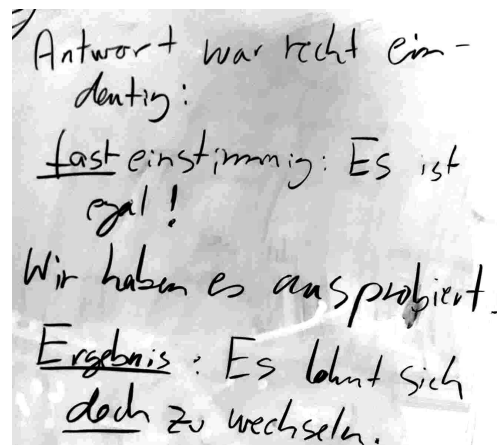 Antwort war recht ein-
deutig:
fast einstimmig: Es ist
egal!
Wir haben es ausprobiert.
Ergebnis: Es lohnt sich
doch zu wechseln.